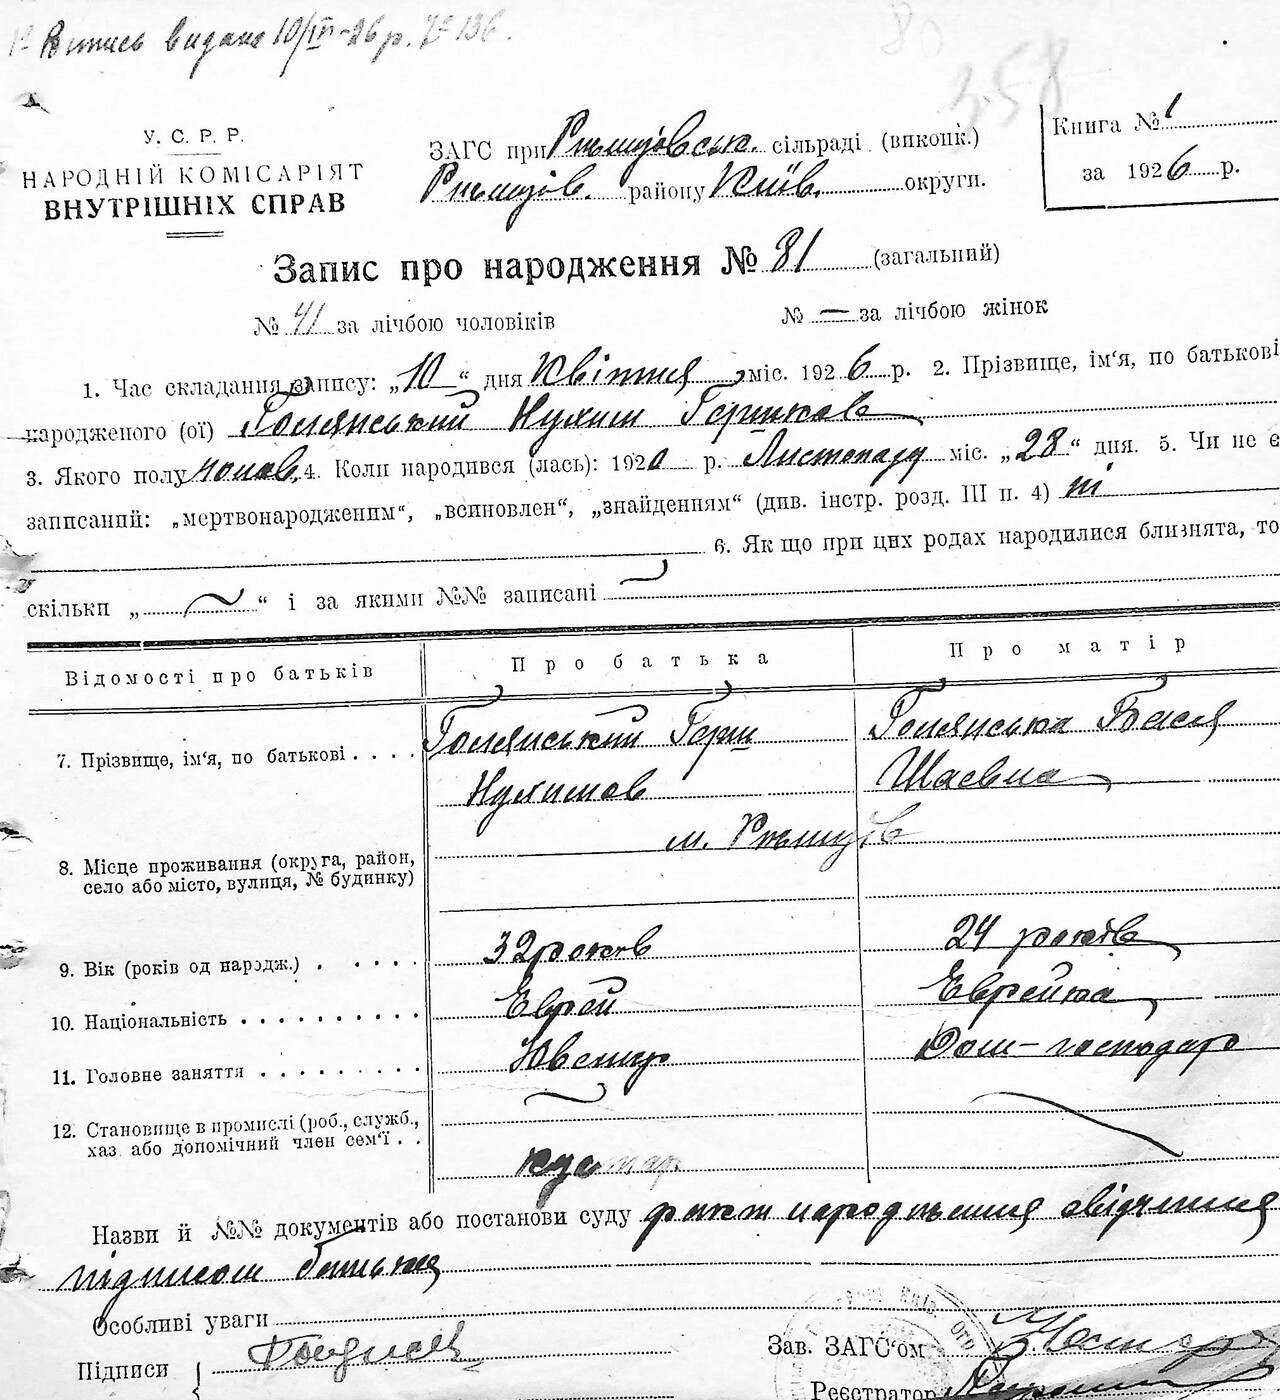 Впись видана 10/IV-26 р. № 136.
80
358
У.С.Р.Р.
НАРОДНІЙ КОМІСАРІЯТ
ВНУТРІШНІХ СПРАВ
ЗАГС при Ржищівськ. сільраді (виконк.)
Ржищів. району Київ. округи.
Книга № 1
за 1926 р.
Запис про народження № 81 (загальний)
№ 41 за лічбою чоловіків № — за лічбою жінок
1. Час складання запису: „10“ дня Квітня міс. 1926 р. 2. Прізвище, ім‘я, по батькові
народженого (ої) Голянський Нухим Гершков
3. Якого полу чолов. 4. Коли народився (лась): 1920 р. Листопаду міс. „28“ дня. 5. Чи не є
записаний: „мертвонародженим“, „всиновлен“, „знайденням“ (див. інстр. розд. III п. 4) ні
6. Як що при цих родах народилися близнята, то
скільки „ ~ “ і за якими №№ записані
Відомості про батьків Про батька Про матір
7. Прізвище, ім‘я, по батькові . . . . Голянський Герш Голянська Бася
Нухимов Шаєвна
м. Ржищів
8. Місце проживання (округа, район,
село або місто, вулиця, № будинку)
9. Вік (років од народж.) . . . . . 32 років 24 років
10. Національність . . . . . . . . . . Еврей Еврейка
11. Головне заняття . . . . . . . . . Ювелир Дом-господар
12. Становище в промислі (роб., служб.,
хаз. або допомічний член сем‘ї . .
кустар
Назви й №№ документів або постанови суду факт народження свідчиння
підписом батька
Особливі уваги
Підписи
Зав. ЗАГС‘ом
Реєстратор